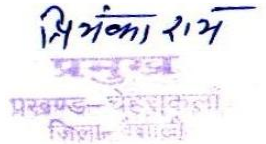 प्रियंका राय
प्रमुख
प्रखण्ड- चेहराकलाँ
जिला- वैशाली